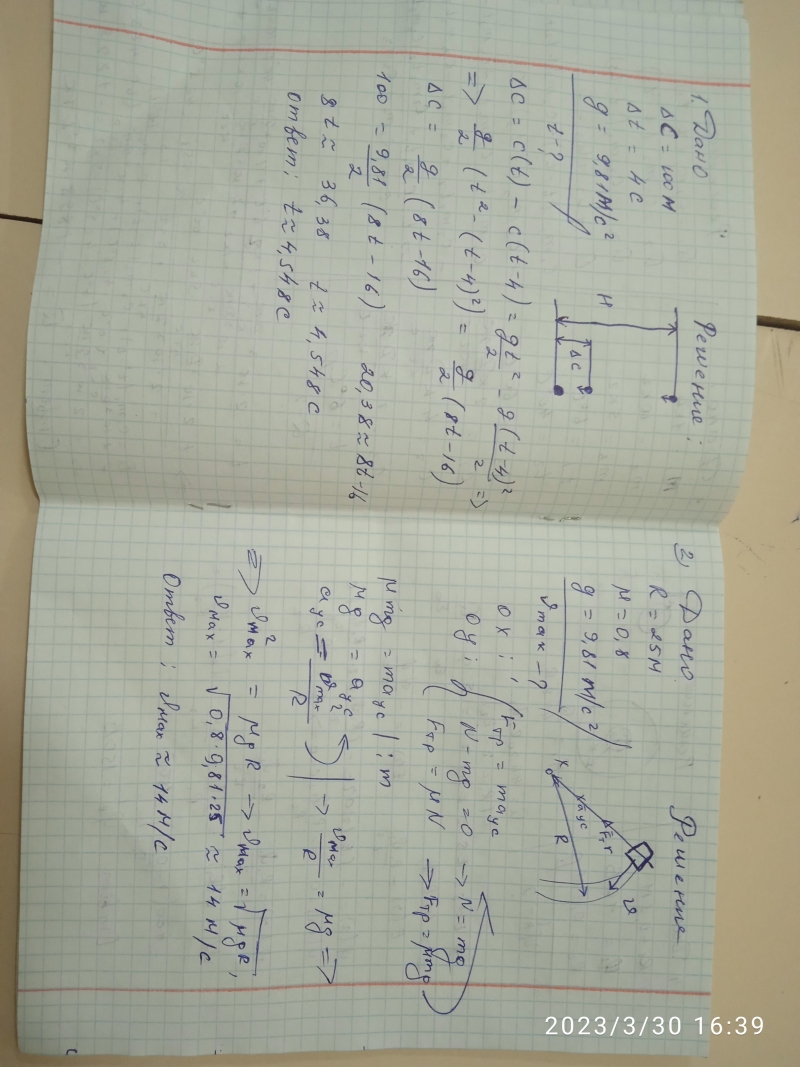 1. Дано
ΔC = 100 м
Δt = 4 с
g = 9,81 м/с²
t - ?
Решение:
H
ΔC
ΔC = C(t) - C(t-4) = gt²/2 - g(t-4)²/2 =>
=> g/2 (t² - (t-4)²) = g/2 (8t-16)
ΔC = g/2 (8t-16)
100 = 9,81/2 (8t-16) 20,38 ≈ 8t-16
8t ≈ 36,38 t ≈ 4,548 с
Ответ: t ≈ 4,548 с
2) Дано
R = 25 м
μ = 0,8
g = 9,81 м/с²
υmax - ?
Решение
x
aус
Fтр
R
υ
ox: Fтр = maус
oy: N - mg = 0 → N = mg
Fтр = μN → Fтр = μmg
μmg = maус | : m
μg = aус
aус = υ²max/R → υmax/R = μg =>
=> υ²max = μgR → υmax = √μgR,
υmax = √0,8·9,81·25 ≈ 14 м/с
Ответ: υmax ≈ 14 м/с
2023/3/30 16:39